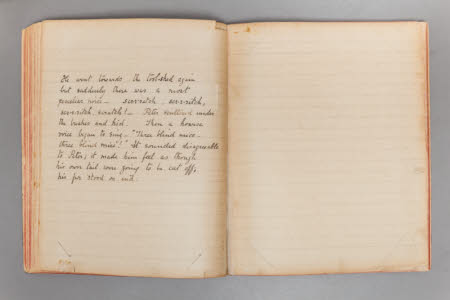 He went towards the toolshed again
but suddenly there was a most
peculiar noise — scr-r-ritch, scr-r-ritch,
scr-r-ritch, scratch! — Peter scuttered under
the bushes and hid. Then a hoarse
voice began to sing — "Three blind mice —
three blind mice"! It sounded disagreeable
to Peter; it made him feel as though
his own tail were going to be cut off;
his fur stood on end.